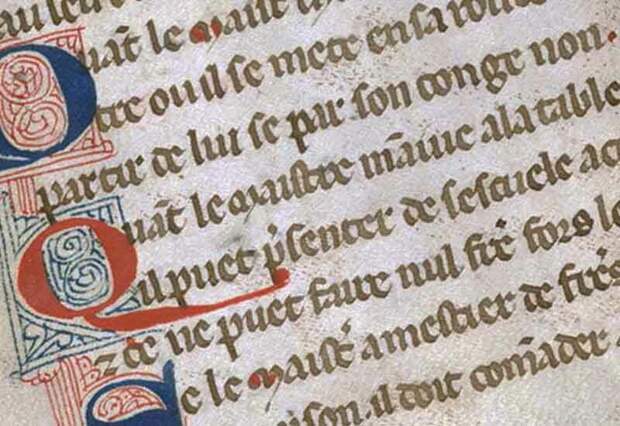 au leu
Quāt le maist
tre ou il se mete en sa
partir de lui se par son conge non.
Quāt le maistre māiue a la table
il puet p̄senter de sescuele a
z ce ne puet faire nul frē fors le
Se le maist̄ a mestier de frēs
il doit comāder